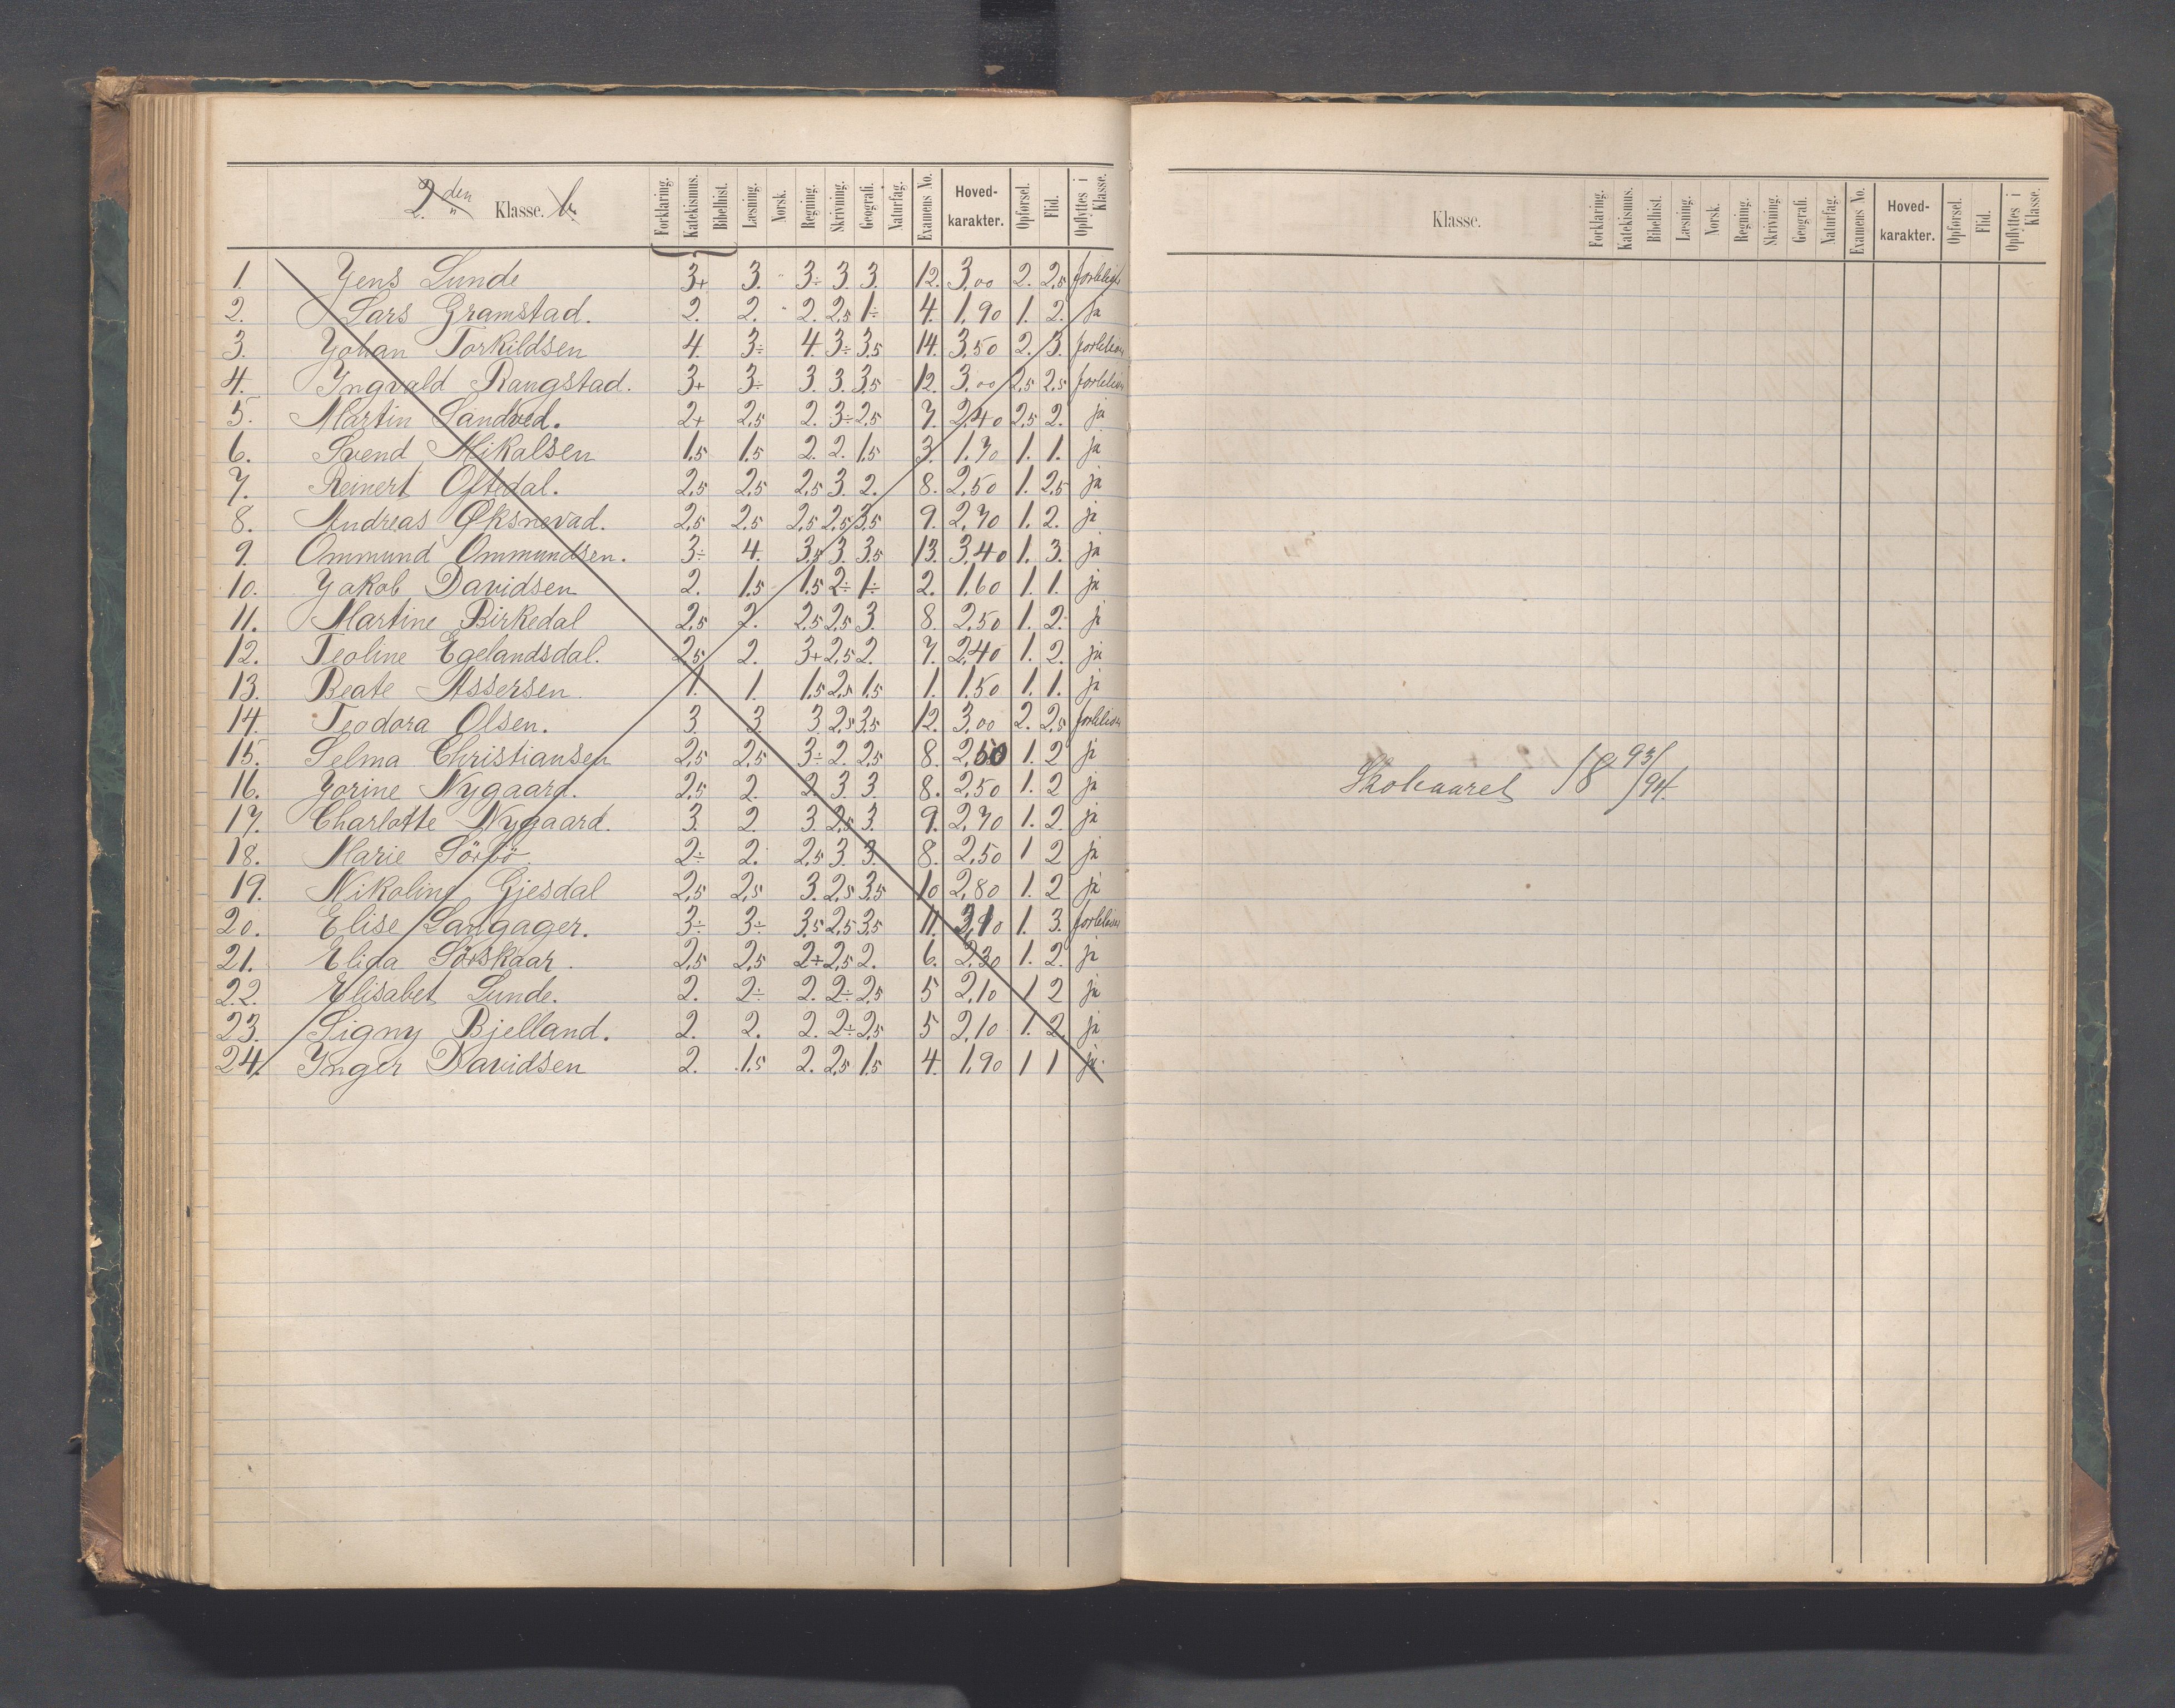 2. den Klasse. b.
Forklaring. Katekismus. Bibelhist. Læsning. Norsk. Regning. Skrivning. Geografi. Naturfag. Examens No. Hoved-karakter. Opførsel. Flid. Opflyttes i Klasse.
1. Jens Lunde 3+ 3. 3÷ 3. 3. 12. 3,00 2. 2,5 forbliver
2. Lars Gramstad. 2. 2. 2. 2,5 1÷ 4. 1,90 1. 2. ja
3. Johan Torkildsen 4. 3÷ 4. 3÷ 3,5 14. 3,50 2. 3. forbliver
4. Ingvald Rangstad. 3+ 3÷ 3. 3. 3,5 12. 3,00 2,5 2,5 forbliver
5. Martin Sandved. 2+ 2,5 2. 3÷ 2,5 7. 2,40 2,5 2. ja
6. Svend Mikalsen 1,5 1,5 2. 2. 1,5 3. 1,70 1. 1. ja
7. Reinert Oftedal. 2,5 2,5 2,5 3. 2. 8. 2,50 1. 2,5 ja
8. Andreas Øksnevad. 2,5 2,5 2,5 2,5 3,5 9. 2,70 1. 2. ja
9. Ommund Ommundsen. 3÷ 4. 3,5 3. 3,5 13. 3,40 1. 3. ja
10. Jakob Davidsen 2. 1,5 1,5 2÷ 1÷ 2. 1,60 1. 1. ja
11. Martine Birkedal 2,5 2. 2,5 2,5 3. 8. 2,50 1. 2. ja
12. Teoline Egelandsdal. 2,5 2. 3+ 2,5 2. 7. 2,40 1. 2. ja
13. Beate Assersen. 1. 1. 1,5 2,5 1,5 1. 1,50 1. 1. ja
14. Teodora Olsen. 3 3. 3. 2,5 3,5 12. 3,00 2. 2,5 forbliver
15. Selma Christiansen 2,5 2,5 3÷ 2. 2,5 8. 2,50 1. 2 ja
16. Jorine Nygaard. 2,5 2. 2 3. 3. 8. 2,50 1. 2 ja
17. Charlotte Nygaard. 3. 2. 3. 2,5 3. 9. 2,70 1. 2. ja
18. Marie Sörbö. 2÷ 2. 2,5 3. 3. 8. 2,50 1 2 ja
19. Nikoline Gjesdal 2,5 2,5 3. 2,5 3,5 10 2,80 1. 2 ja
20. Elise Langager. 3÷ 3÷ 3,5 2,5 3,5 11. 3,10 1. 3. forbliver
21. Elida Sörskaar. 2,5 2,5 2÷ 2,5 2. 6. 2,30 1. 2. ja
22. Elisabet Lunde. 2. 2÷ 2. 2÷ 2,5 5 2,10 1 2 ja
23. Signy Bjelland. 2. 2. 2. 2÷ 2,5 5 2,10 1. 2. ja
24. Inger Davidsen 2. 1,5 2. 2,5 1,5 4. 1,90 1 1 ja.
Klasse.
Forklaring. Katekismus. Bibelhist. Læsning. Norsk. Regning. Skrivning. Geografi. Naturfag. Examens No. Hoved-karakter. Opførsel. Flid. Opflyttes i Klasse.
Skoleaaret 18 93/94.